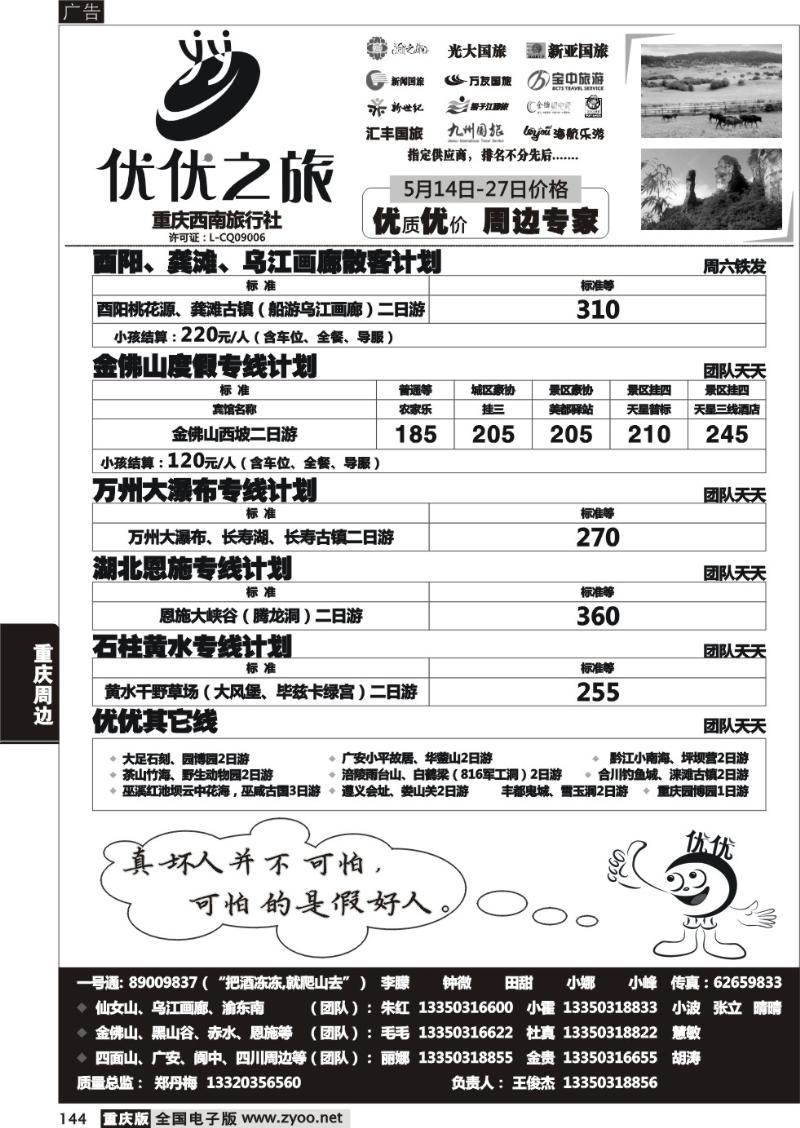 广告
优优之旅
重庆西南旅行社
许可证：L-CQ09006
渝之旅 光大国旅 新亚国旅
新闻国旅 万友国旅 宝中旅游
BCTS TRAVEL SERVICE
新世纪 扬子江国旅
汇丰国旅 九州国旅 海航乐游
指定供应商，排名不分先后.......
5月14日-27日价格
优质优价 周边专家
酉阳、龚滩、乌江画廊散客计划 周六铁发
标 准 标准等
酉阳桃花源、龚滩古镇（船游乌江画廊）二日游 310
小孩结算：220元/人（含车位、全餐、导服）
金佛山度假专线计划 团队天天
标 准 普通等 城区豪协 景区豪协 景区挂四 景区挂四
宾馆名称 农家乐 挂三 美都驿站 天星普标 天星三线酒店
金佛山西坡二日游 185 205 205 210 245
小孩结算：120元/人（含车位、全餐、导服）
万州大瀑布专线计划 团队天天
标 准 标准等
万州大瀑布、长寿湖、长寿古镇二日游 270
湖北恩施专线计划 团队天天
标 准 标准等
恩施大峡谷（腾龙洞）二日游 360
石柱黄水专线计划 团队天天
标 准 标准等
黄水千野草场（大风堡、毕兹卡绿宫）二日游 255
优优其它线 团队天天
大足石刻、园博园2日游 广安小平故居、华蓥山2日游 黔江小南海、坪坝营2日游
茶山竹海、野生动物园2日游 涪陵雨台山、白鹤梁（816军工洞）2日游 合川钓鱼城、涞滩古镇2日游
巫溪红池坝云中花海，巫咸古国3日游 遵义会址、娄山关2日游 丰都鬼城、雪玉洞2日游 重庆园博园1日游
真坏人并不可怕，
可怕的是假好人。
优优
重庆周边
一号通: 89009837（“把酒冻冻,就爬山去”） 李朦 钟微 田甜 小娜 小峰 传真：62659833
仙女山、乌江画廊、渝东南 （团队）：朱红 13350316600 小霍 13350318833 小波 张立 晴晴
金佛山、黑山谷、赤水、恩施等 （团队）：毛毛 13350316622 杜真 13350318822 慧敏
四面山、广安、阆中、四川周边等（团队）：丽娜 13350318855 金贵 13350316655 胡涛
质量总监： 郑丹梅 13320356560 负责人： 王俊杰 13350318856
144 重庆版 全国电子版 www.zyoo.net